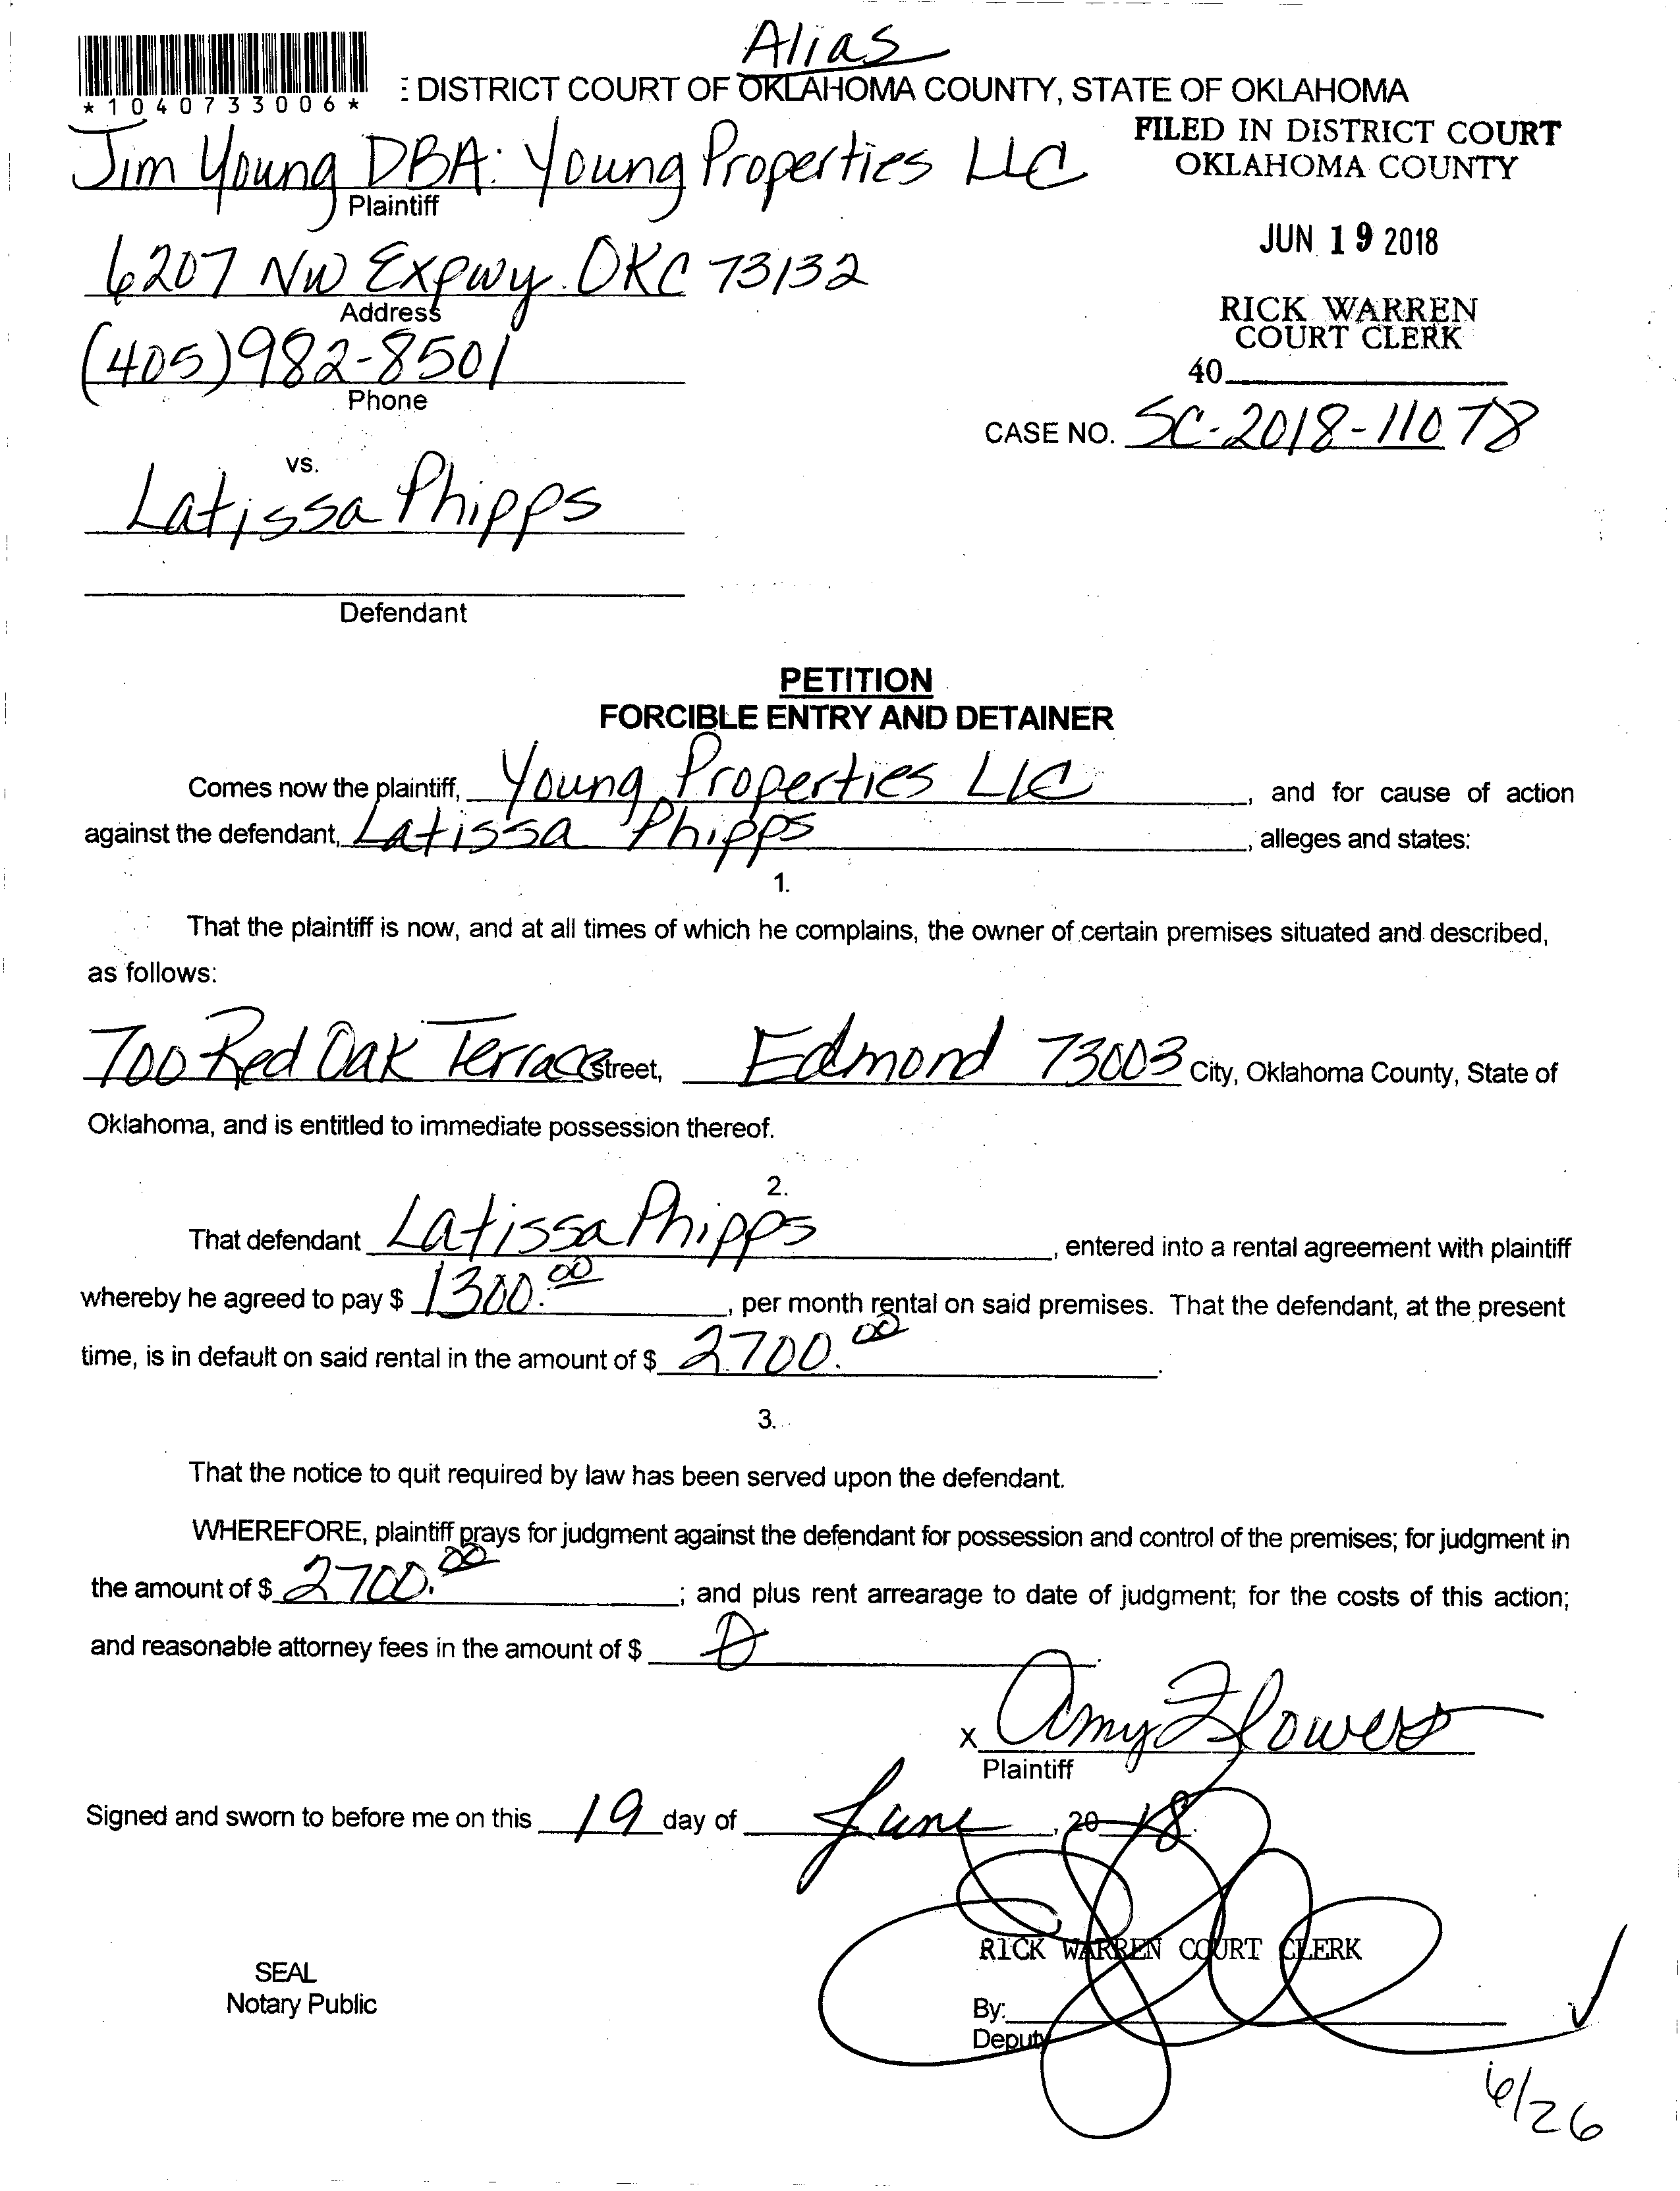 Alias
*1040733006*
: DISTRICT COURT OF OKLAHOMA COUNTY, STATE OF OKLAHOMA
FILED IN DISTRICT COURT
OKLAHOMA COUNTY
Jim Young DBA: Young Properties LLC
Plaintiff
JUN 19 2018
6207 NW Expwy. OKC 73132
Address
RICK WARREN
COURT CLERK
(405)982-8501
Phone
40
CASE NO. SC-2018-11078
vs.
Latissa Phipps
Defendant
PETITION
FORCIBLE ENTRY AND DETAINER
Comes now the plaintiff, Young Properties LLC, and for cause of action
against the defendant, Latissa Phipps, alleges and states:
1.
That the plaintiff is now, and at all times of which he complains, the owner of certain premises situated and described,
as follows:
700 Red Oak Terrace Street, Edmond 73003 City, Oklahoma County, State of
Oklahoma, and is entitled to immediate possession thereof.
2.
That defendant Latissa Phipps, entered into a rental agreement with plaintiff
whereby he agreed to pay $ 1300.00, per month rental on said premises. That the defendant, at the present
time, is in default on said rental in the amount of $ 2700.00.
3.
That the notice to quit required by law has been served upon the defendant.
WHEREFORE, plaintiff prays for judgment against the defendant for possession and control of the premises; for judgment in
the amount of $ 2700.00; and plus rent arrearage to date of judgment; for the costs of this action;
and reasonable attorney fees in the amount of $ 0.
x Amy Flowers
Plaintiff
Signed and sworn to before me on this 19 day of June, 2018.
RICK WARREN COURT CLERK
SEAL
Notary Public
By:
Deputy
6/26